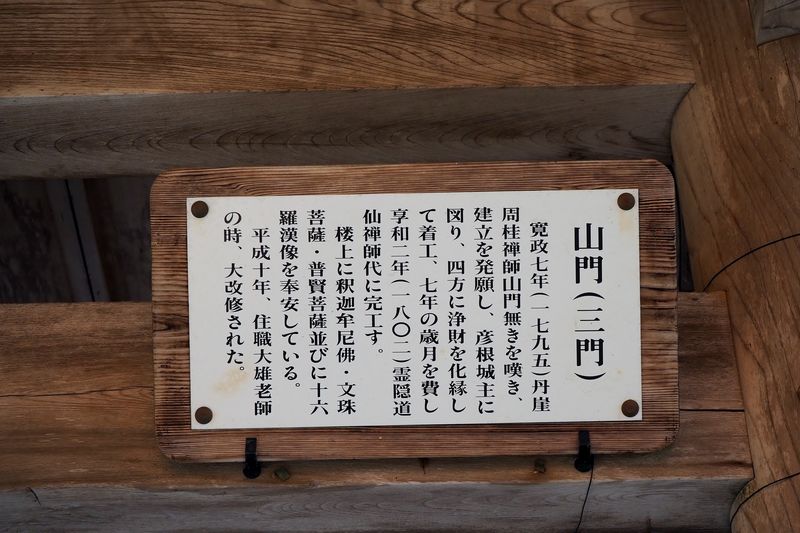 山門(三門)
寛政七年(一七九五)丹崖
周桂禅師山門無きを嘆き、
建立を発願し、彦根城主に
図り、四方に浄財を化縁し
て着工、七年の歳月を費し
享和二年(一八〇二)霊隠道
仙禅師代に完工す。
楼上に釈迦牟尼佛・文珠
菩薩・普賢菩薩並びに十六
羅漢像を奉安している。
平成十年、住職大雄老師
の時、大改修された。